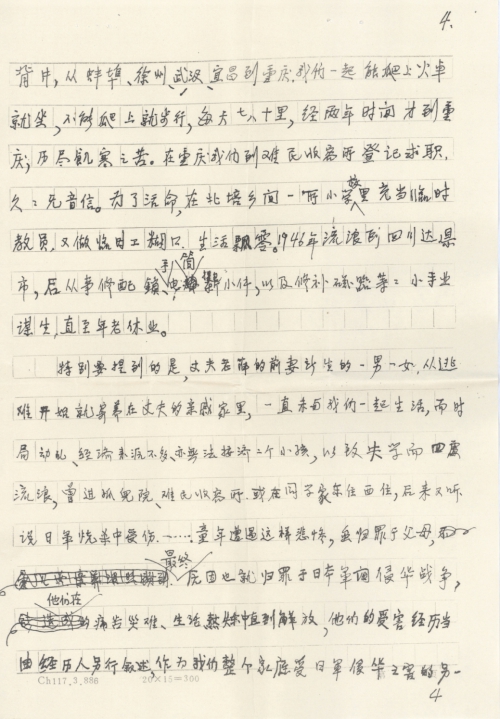 4.
背井，从蚌埠、徐州、武汉、宜昌到重庆，我们一起能爬上火车
就坐，不能爬上就步行，每天七八十里，经两年时间才到重
庆，历尽飢寒之苦。在重庆我们到难民收容所登记求职，
久久无音信。为了活命，在北培乡间一所小学里充当临时
教员，又做临时工糊口，生活飘零。1946年流浪到四川达县
市，后从事修配锁、 小件，以及修补 等等小手业
谋生，直至年老休业。
特别要提到的是，丈夫 的前妻所生的一男一女，从逃
难开始就寄养在丈夫的亲戚家里，一直未与我们一起生活，而时
局动乱、经济来源不多，亦无法接济二个小孩，以致失学而四处
流浪，曾进孤儿院、难民收容所，或在同学家东住西住，后来又听
说日军烧杀中受伤……童年遭遇这样悲惨，虽归罪于父母，
最终
原因也就归罪于日本军阀侵华战争，
他们在
的痛苦灾难、生活 中直到解放，他们的受害经历当
由经历人另行叙述，作为我们整个家庭受日军侵华之害的另一
Ch117.3.886 20×15=300
4